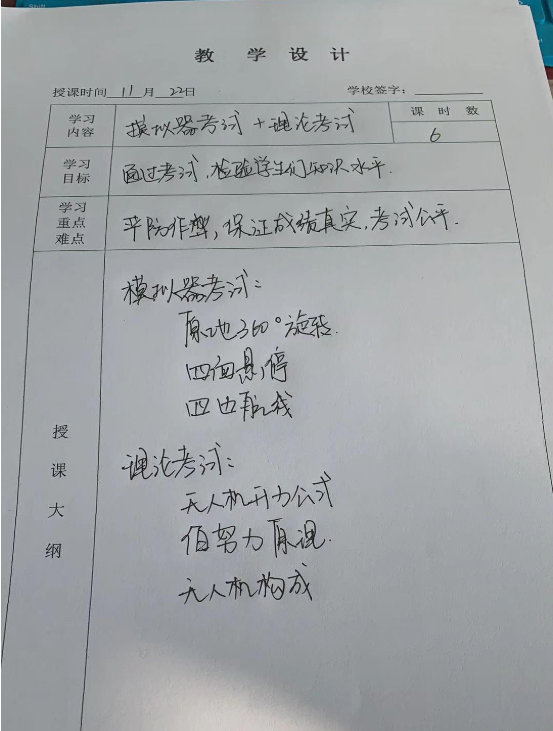 教 学 设 计
授课时间 11 月 22日 学校签字：
学习内容 模拟器考试 + 理论考试 课 时 数 6
学习目标 通过考试，检验学生们知识水平.
学习重点难点 严防作弊，保证成绩真实，考试公平.
授课大纲
模拟器考试：
原地360°旋转.
四面悬停
四边航线
理论考试：
无人机升力公式
伯努力原理.
无人机构成